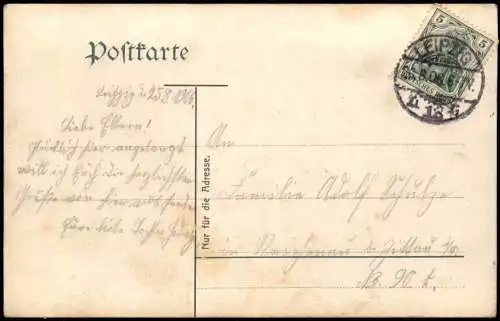 Postkarte
5 5
LEIPZIG
25.8.06.
13
Leipzig d. 25.8.1906.
Liebe Eltern!
Glücklich hier angelangt
will ich Euch die herzlichsten
Grüße von hier aus senden
Eure liebe Tochter
Nur für die Adresse.
An
Familie Adolf Schulze
in Reichenau b. Zittau i/S.
No. 90